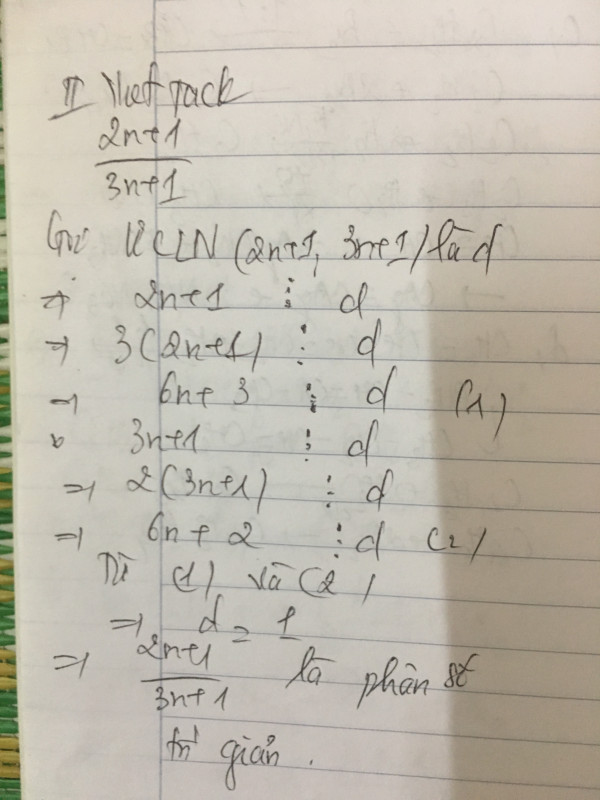 II Vietjack
2n+1
3n+1
Gọi ƯCLN (2n+1, 3n+1) là d
⇒ 2n+1 ⋮ d
⇒ 3(2n+1) ⋮ d
⇒ 6n+3 ⋮ d (1)
3n+1 ⋮ d
⇒ 2(3n+1) ⋮ d
⇒ 6n+2 ⋮ d (2)
Từ (1) và (2)
⇒ d = 1
⇒ 2n+1
3n+1 là phân số
tối giản.